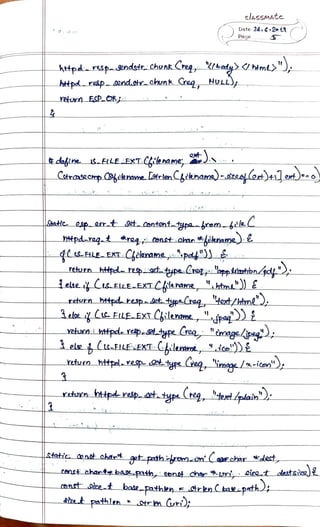 classmate
Date 24.6.2019
Page 5
httpd_resp_sendstr_chunk (req, "</body></html>");
httpd_resp_sendstr_chunk (req, NULL);
return ESP_OK;
}
# define IS_FILE_EXT (filename, ext) \
(strcasecmp (&filename [strlen (filename) - sizeof (ext) +1] ext) == 0)
static esp_err_t set_content_type_from_file (
httpd_req_t *req, const char *filename) {
if (IS_FILE_EXT (filename, ".pdf")) {
return httpd_resp_set_type (req, "application/pdf");
} else if (IS_FILE_EXT (filename, ".html")) {
return httpd_resp_set_type (req, "text/html");
} else if (IS_FILE_EXT (filename, ".jpeg")) {
return httpd_resp_set_type (req, "image/jpeg");
} else if (IS_FILE_EXT (filename, ".ico")) {
return httpd_resp_set_type (req, "image/x-icon");
}
return httpd_resp_set_type (req, "text/plain");
}
static const char* get_path_from_uri (char *dest,
const char * base_path, const char *uri, size_t destsize) {
const size_t base_pathlen = strlen (base_path);
size_t pathlen = strlen (uri);